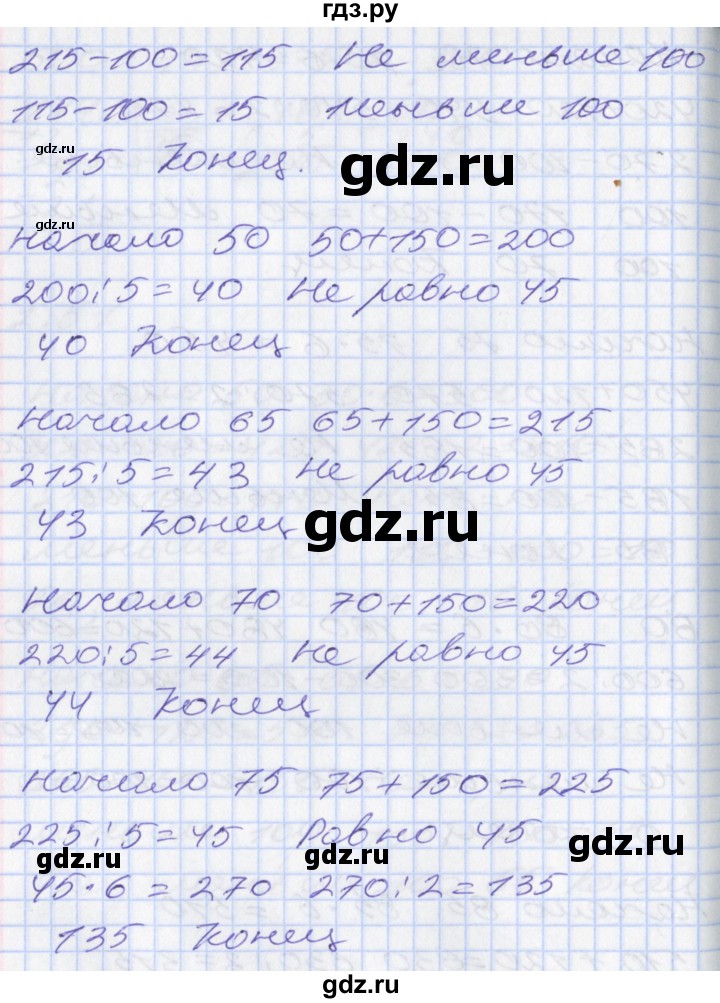 гдз.ру
215-100=115 Не меньше 100
115-100=15 меньше 100
gdz.ru
15 Конец.
gdz.ru
gdz.ru
Начало 50 50+150=200
200:5=40 Не равно 45
40 Конец
Начало 65 65+150=215
215:5=43 Не равно 45
43 Конец
gdz.ru
Начало 70 70+150=220
220:5=44 Не равно 45
44 Конец
Начало 75 75+150=225
225:5=45 Равно 45
gdz.ru gdz.ru gdz.ru
45·6=270 270:2=135
135 Конец
gdz.ru